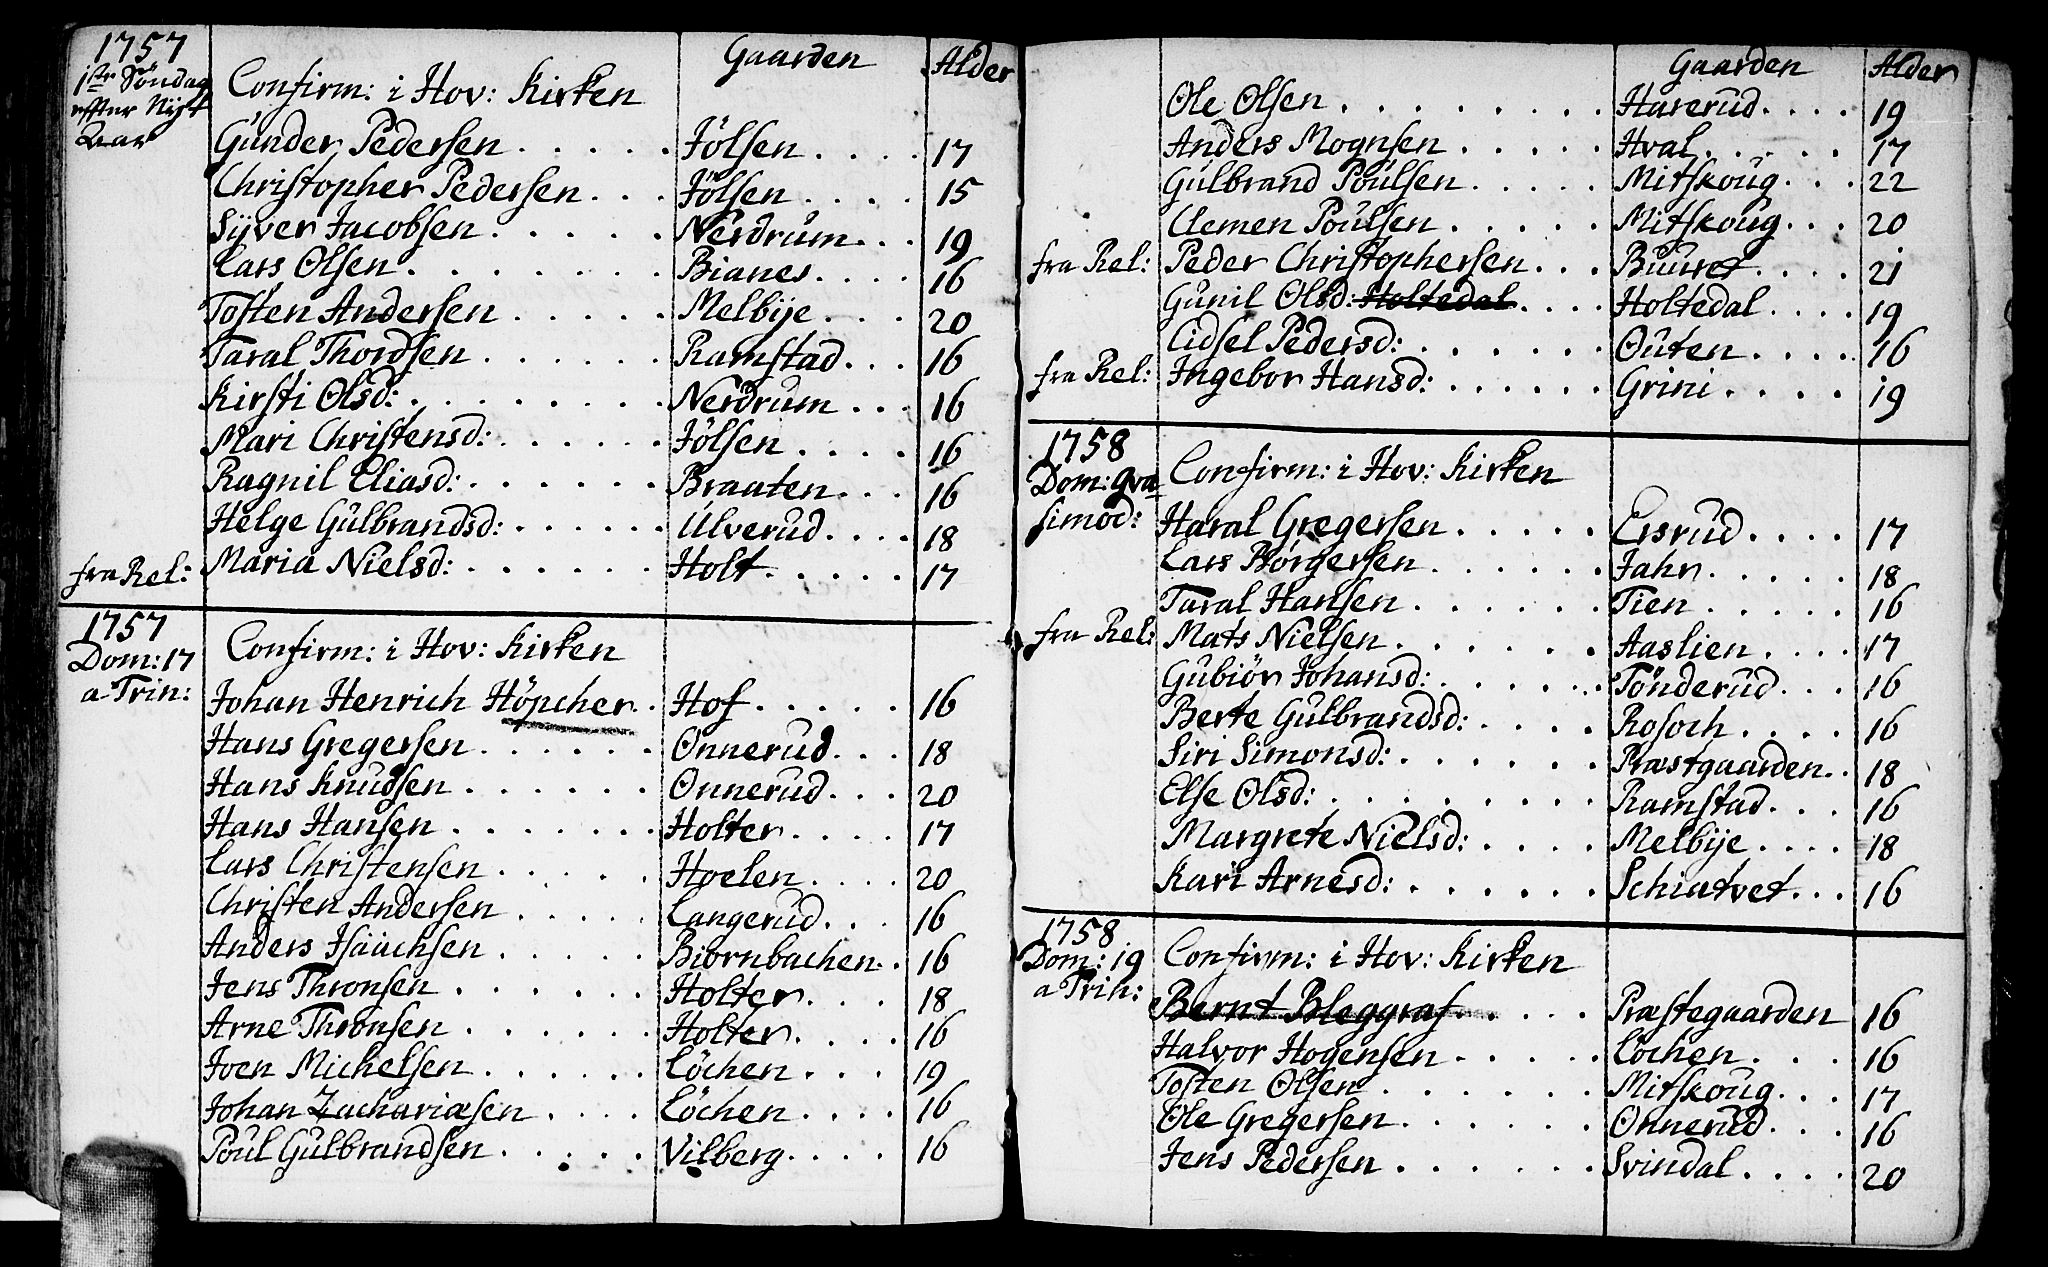 1757
1ste Söndag
effter Nyt
Aar
Confirm: i Hov: Kirken Gaarden Alder
Gunder Pedersen Jölsen 17
Christopher Pedersen Jölsen 15
Syver Jacobsen Nerdrum 19
Lars Olsen Bianes 16
Tosten Andersen Melbye 20
Taral Thordsen Ramstad 16
Kirsti Olsd: Nerdrum 16
Mari Christensd: Jölsen 16
Ragnil Eliasd: Braaten 16
Helge Gulbrandsd: Ulverud 18
fra Rel: Maria Nielsd: Holt 17
1757
Dom: 17
a Trin:
Confirm: i Hov: Kirken
Johan Henrich Höpcher Hof 16
Hans Gregersen Onnerud 18
Hans Knudsen Onnerud 20
Hans Hansen Holter 17
Lars Christensen Hoelen 20
Christen Andersen Langerud 16
Anders Isaachsen Biörnbachen 16
Jens Thronsen Holter 18
Arne Thronsen Holter 16
Joen Michelsen Löchen 19
Johan Zachariæsen Löchen 16
Poul Gulbrandsen Vilberg 16
Gaarden Alder
Ole Olsen Harerud 19
Anders Mognsen Hval 17
Gulbrand Poulsen Mitskoug 22
Clemen Poulsen Mitskoug 20
fra Rel: Peder Christophersen Buuret 21
Gunil Olsd: Holtedal Holtedal 19
Lidsel Pedersd: Outen 16
fra Rel: Ingebor Hansd: Grini 19
1758
Dom: Qva
simod:
Confirm: i Hov: Kirken
Haral Gregersen Ersrud 17
Lars Börgersen Jahr 18
Taral Hansen Tien 16
fra Rel: Mats Nielsen Aaslien 17
Gubiör Johansd: Tönderud 16
Berte Gulbrandsd: Rosoch 16
Siri Simonsd: Præstgaarden 18
Else Olsd: Ramstad 16
Margrete Nielsd: Melbye 18
Kari Arnesd: Schiatvet 16
1758
Dom: 19
a Trin:
Confirm: i Hov: Kirken
Bernt Bleggraf Præstegaarden 16
Halvor Hogensen Löchen 16
Tosten Olsen Mitskoug 17
Ole Gregersen Onnerud 16
Jens Pedersen Svindal 20